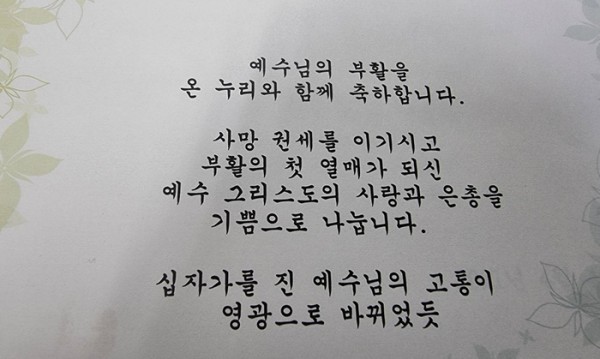 예수님의 부활을
온 누리와 함께 축하합니다.
사망 권세를 이기시고
부활의 첫 열매가 되신
예수 그리스도의 사랑과 은총을
기쁨으로 나눕니다.
십자가를 진 예수님의 고통이
영광으로 바뀌었듯